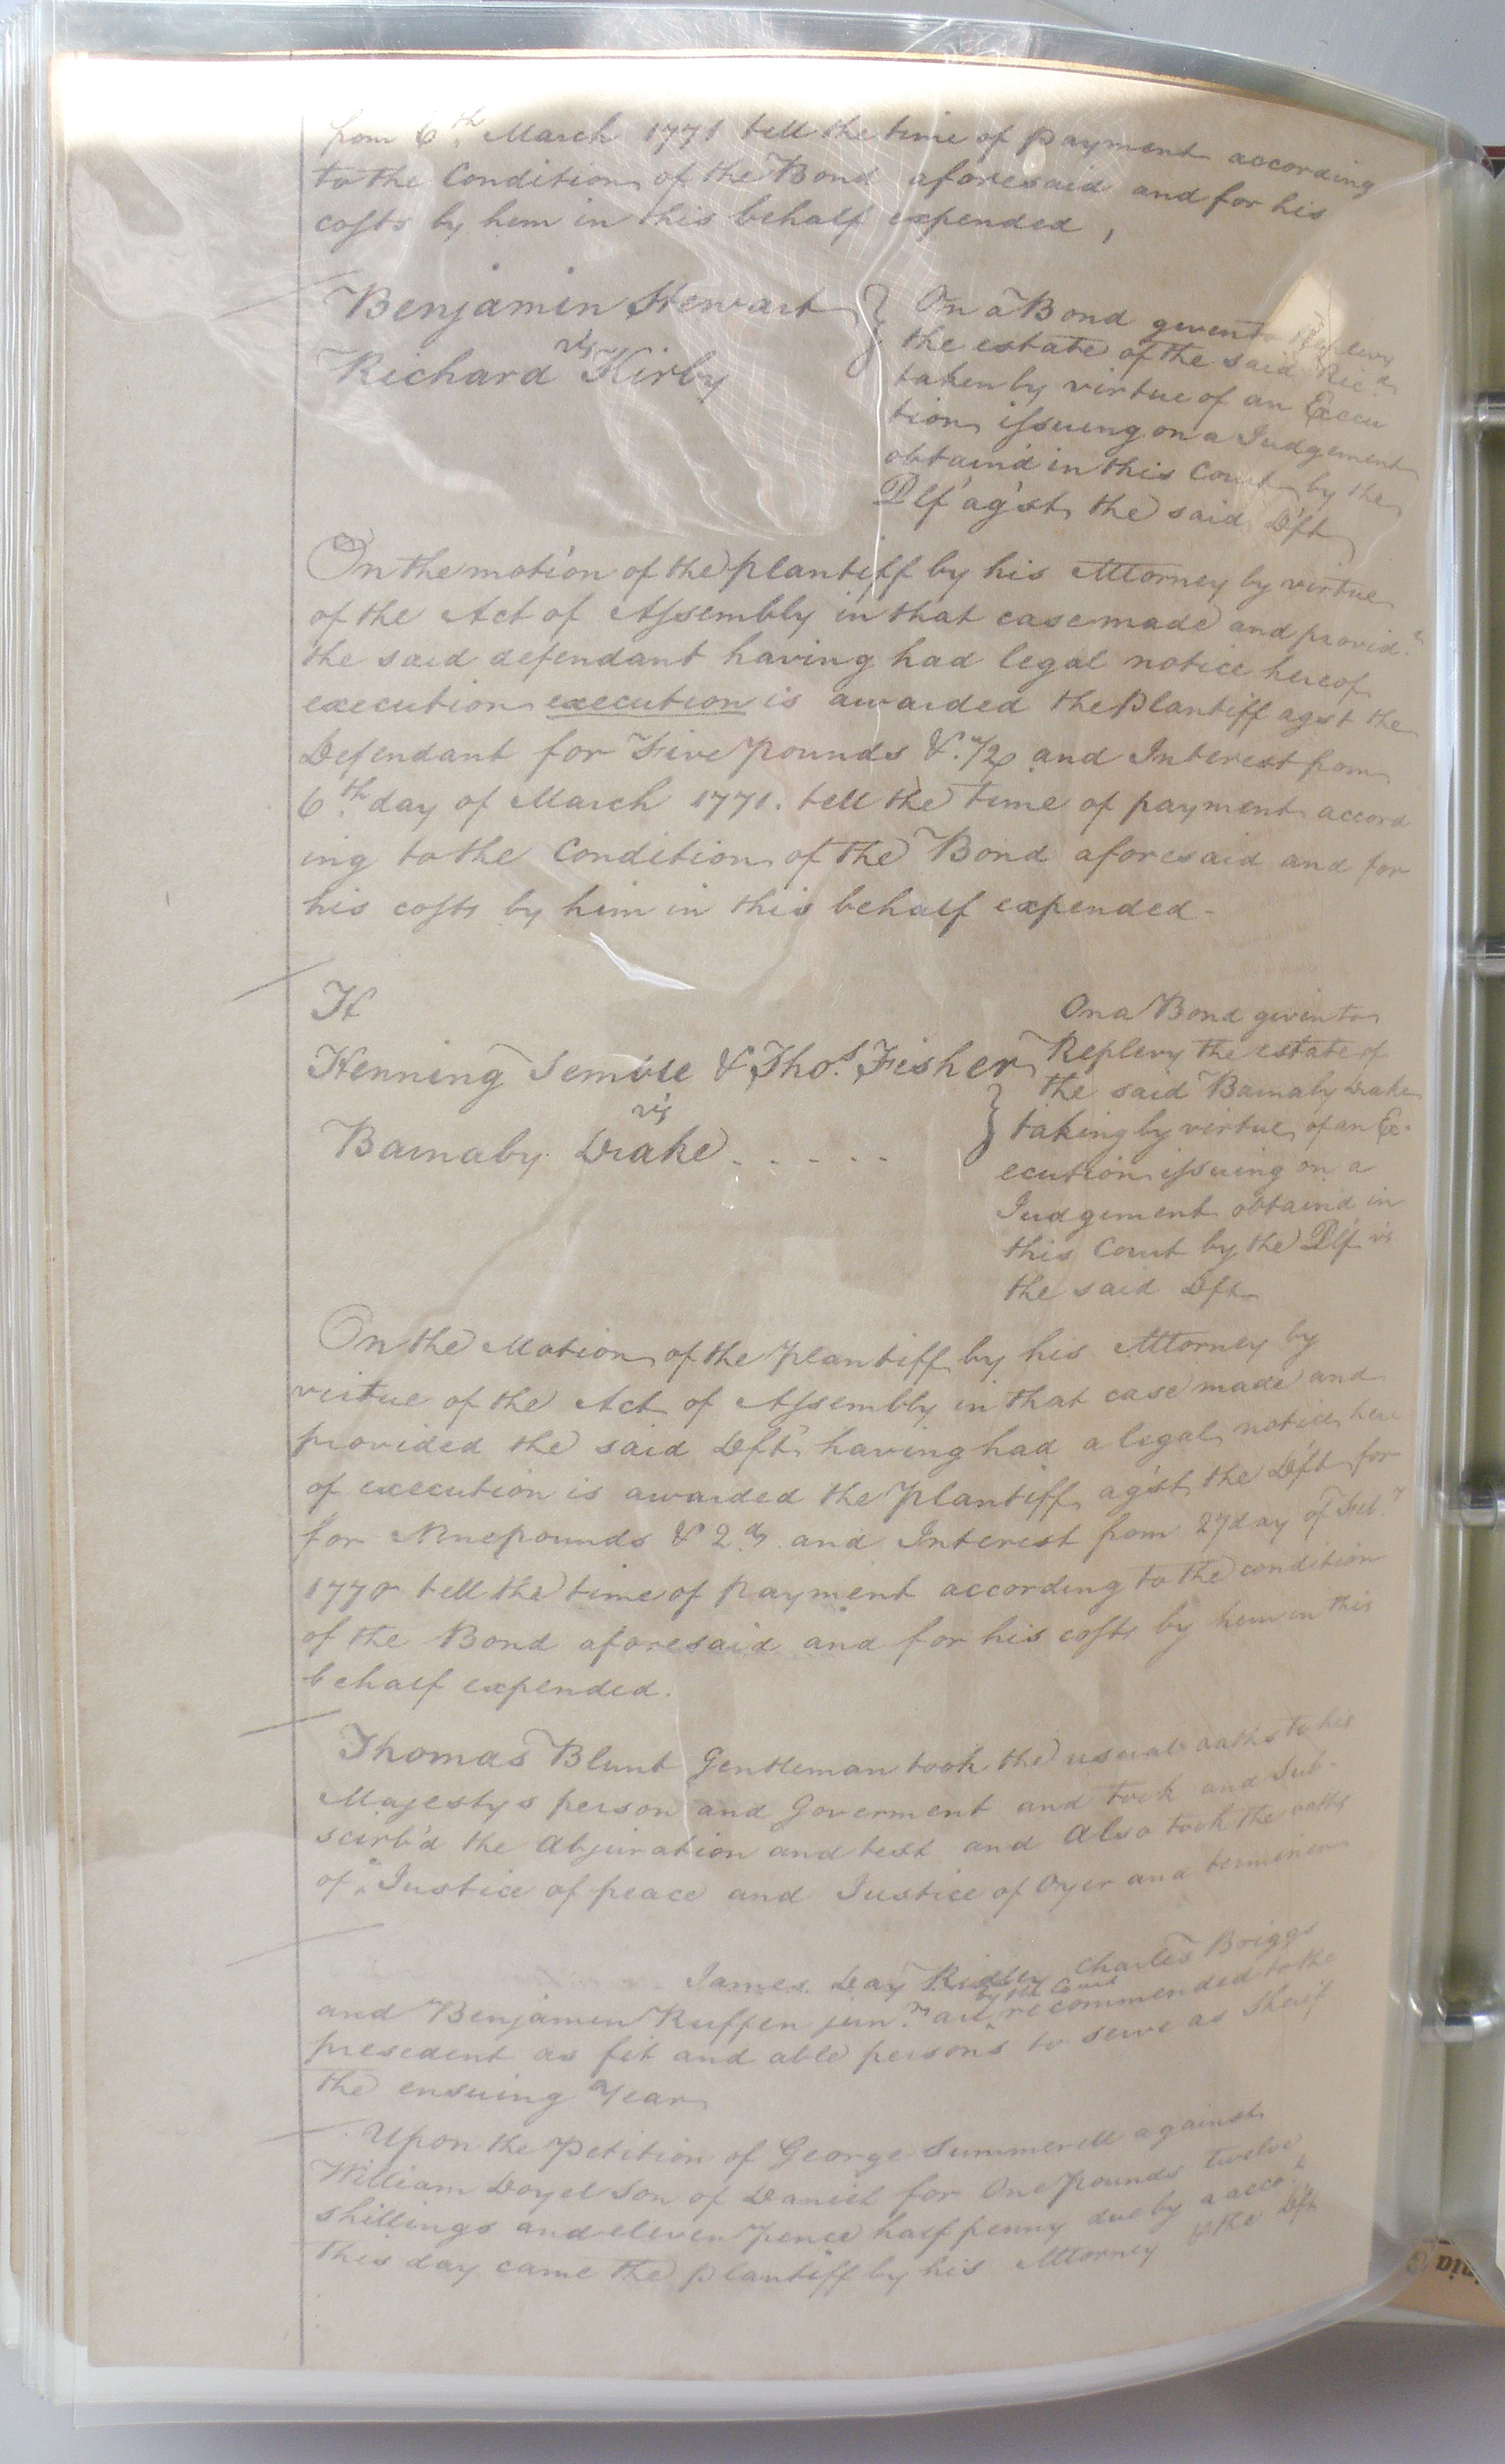 from 6th March 1771 till the time of payment according
to the Condition of the Bond aforesaid and for his
costs by him in this behalf expended,
Benjamin Stewart
vs
Richard Kirby
On a Bond given to Replevy
the estate of the said Ricd
taken by virtue of an Execu
tion issuing on a Judgement
obtain'd in this Court by the
Plf ag'st the said D'ft
On the motion of the plantiff by his Attorney by virtue
of the Act of Assembly in that case made and provid.d
the said defendant having had legal notice hereof
execution execution is awarded the Plantiff agst the
Defendant for Five pounds & /2 and Interest from
6th day of March 1771. till the time of payment accord
ing to the Condition of the Bond aforesaid and for
his costs by him in this behalf expended-
H
Henning & Thos. Fisher
vs
Barnaby Drake . . . . .
On a Bond given to
Replevy the estate of
the said Barnaby Drake
taking by virtue of an Ex-
ecution issuing on a
Judgement obtain'd in
this Court by the Plf vs
the said Dft
On the Motion of the plantiff by his Attorney by
virtue of the Act of Assembly in that case made and
provided the said Dft having had a legal notice here
of execution is awarded the plantiff ag'st the D'ft for
for Nine pounds & 2 and Interest from 27 day of Feby
1770 till the time of payment according to the condition
of the Bond aforesaid and for his costs by him in this
behalf expended.
Thomas Blunt Gentleman took the usual oaths to his
Majestys person and Goverment and took and Sub-
scirb'd the Abjuration and test and Also took the oaths
of a Justice of peace and Justice of Oyer and terminer
James Day Ridley Charles Briggs
and Benjamin Ruffen junr. are by the Court recommended to the
presedent as fit and able persons to serve as Sherif
the ensuing Year
Upon the Petition of George Summerell against
William Doyel Son of Daniel for One pounds twelve
shillings and eleven pence half penny due by a acco.t
this day came the plantiff by his Attorney & the Dft
nia